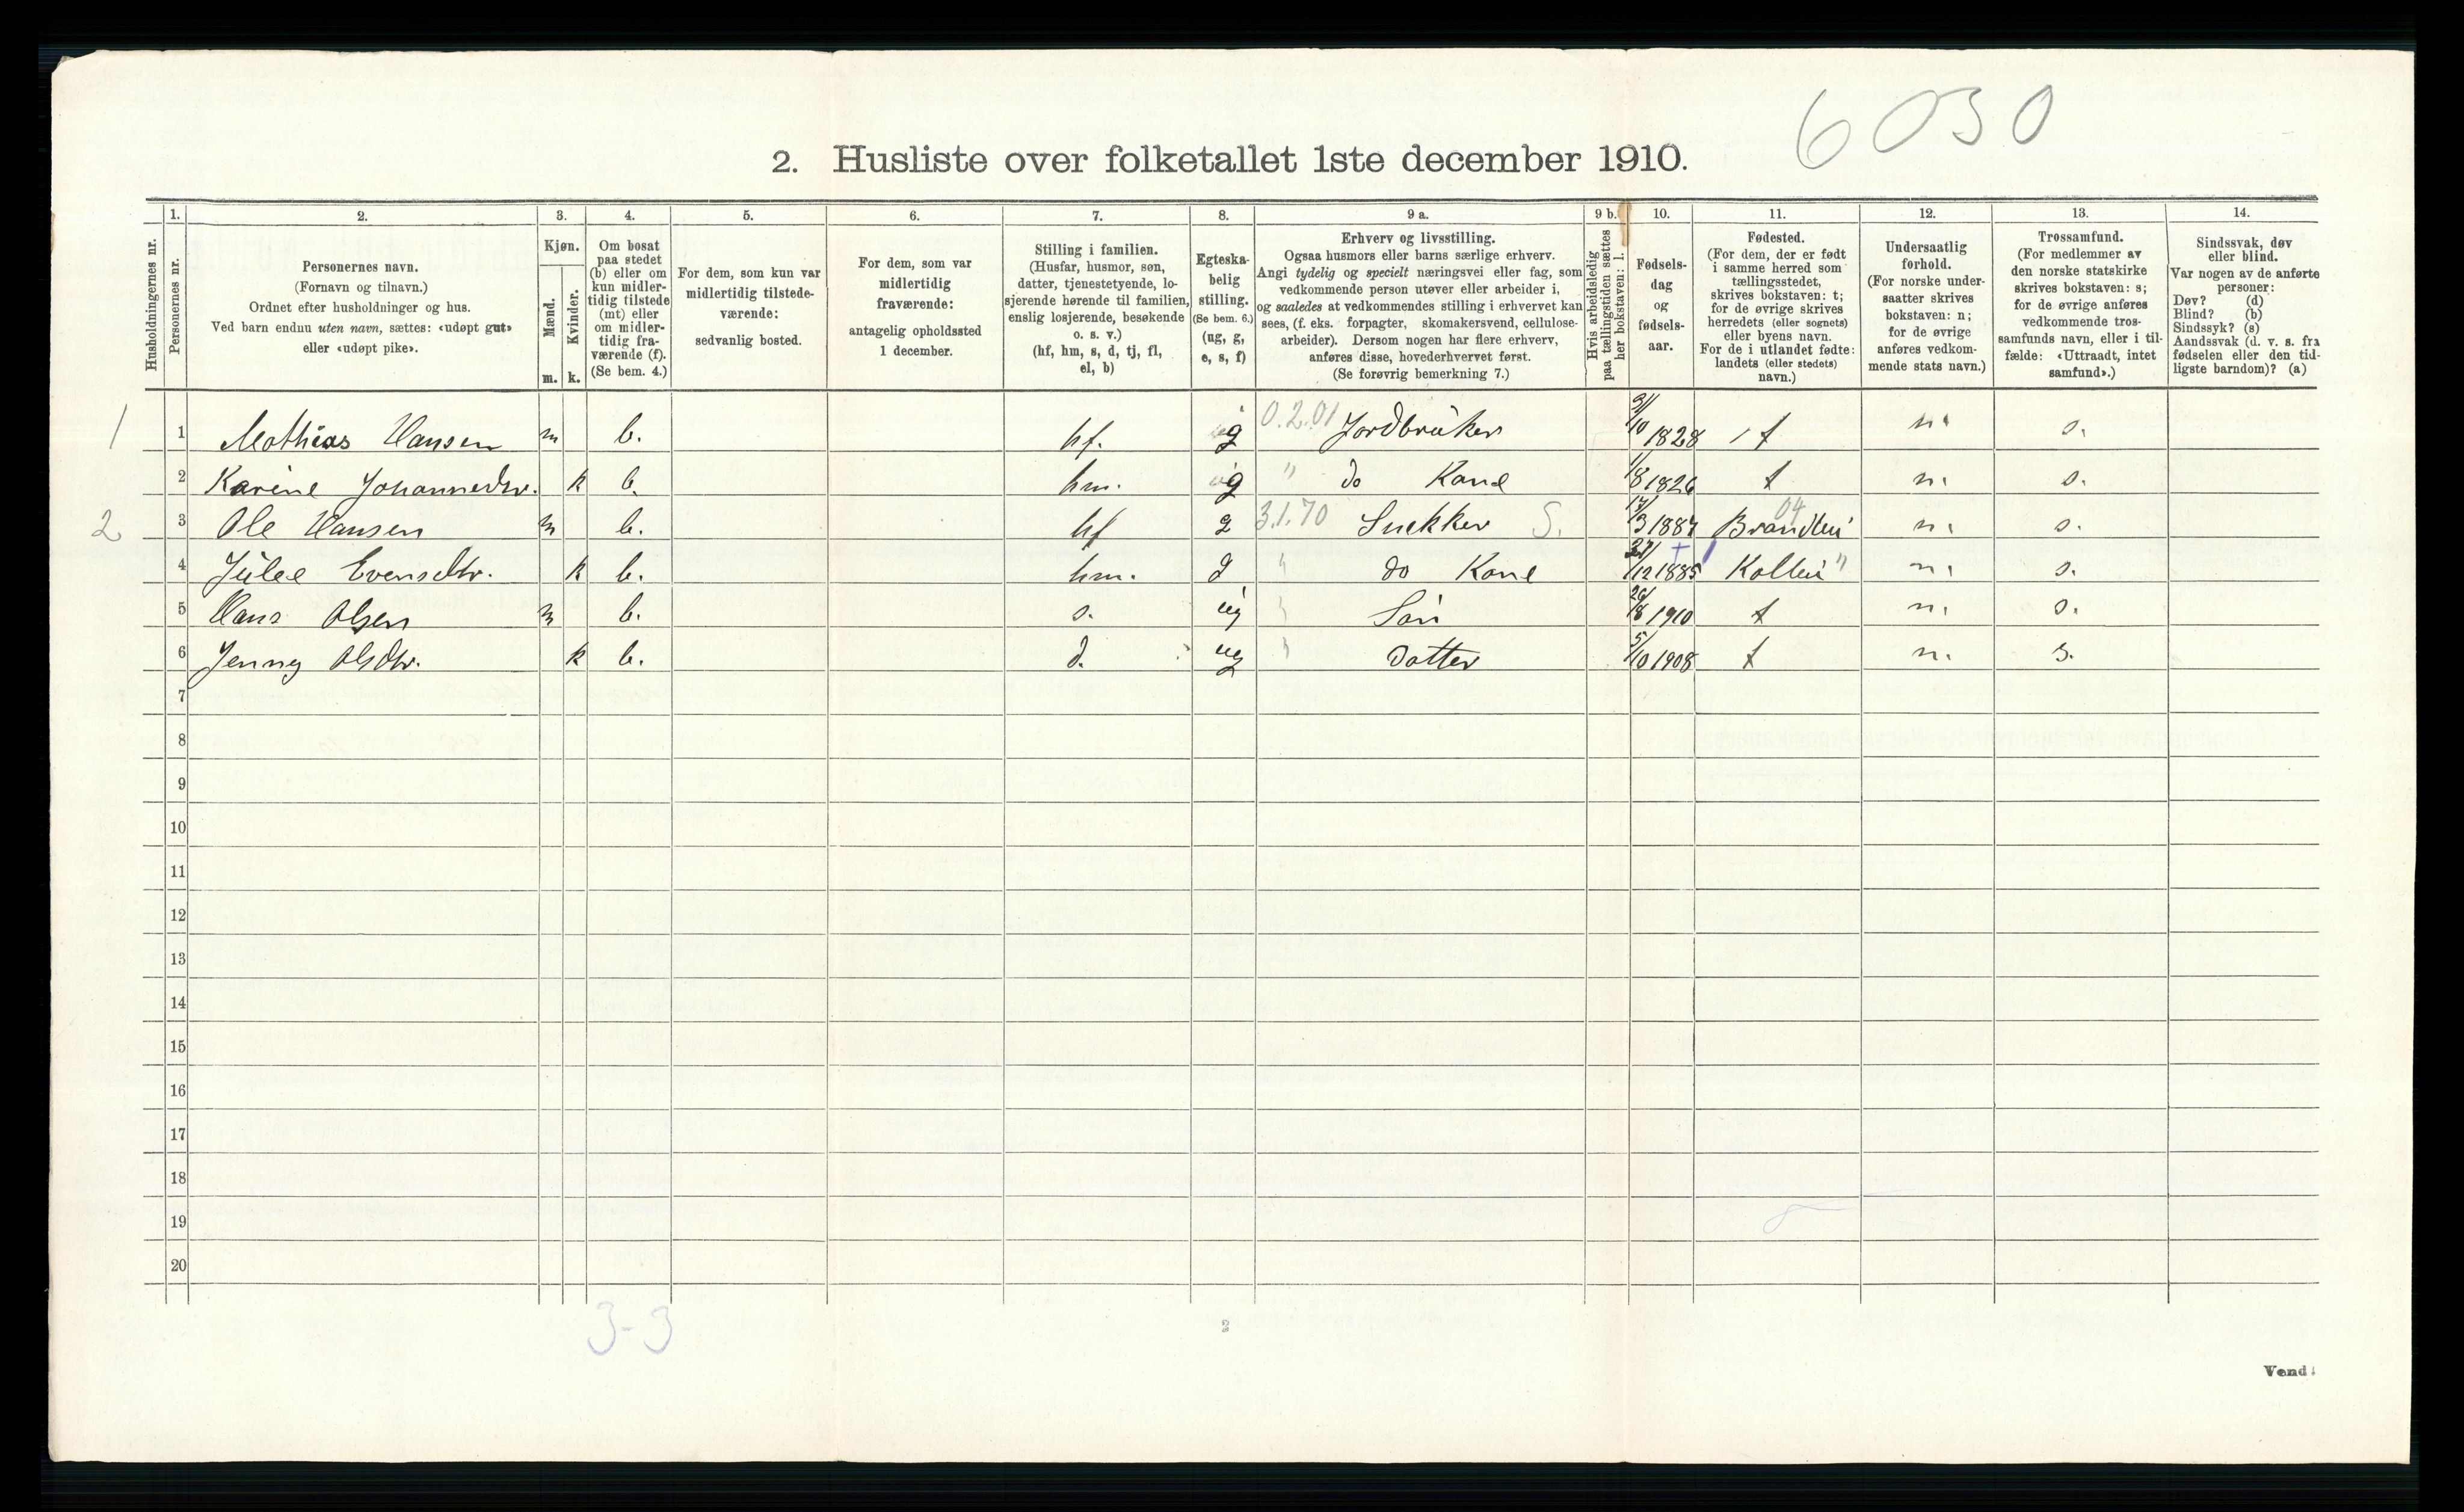 6030
2. Husliste over folketallet 1ste december 1910.
Husholdningernes nr.
1.
Personernes nr.
2.
Personernes navn.
(Fornavn og tilnavn.)
Ordnet efter husholdninger og hus.
Ved barn endnu uten navn, sættes: «udøpt gut»
eller «udøpt pike».
3.
Kjøn.
Mænd.
m.
Kvinder.
k.
4.
Om bosat
paa stedet
(b) eller om
kun midler-
tidig tilstede
(mt) eller
om midler-
tidig fra-
værende (f).
(Se bem. 4.)
5.
For dem, som kun var
midlertidig tilstede-
værende:
sedvanlig bosted.
6.
For dem, som var
midlertidig
fraværende:
antagelig opholdssted
1 december.
7.
Stilling i familien.
(Husfar, husmor, søn,
datter, tjenestetyende, lo-
sjerende hørende til familien,
enslig losjerende, besøkende
o. s. v.)
(hf, hm, s, d, tj, fl,
el, b)
8.
Egteska-
belig
stilling.
(Se bem. 6.)
(ug, g,
e, s, f)
9 a.
Erhverv og livsstilling.
Ogsaa husmors eller barns særlige erhverv.
Angi tydelig og specielt næringsvei eller fag, som
vedkommende person utøver eller arbeider i,
og saaledes at vedkommendes stilling i erhvervet kan
sees, (f. eks. forpagter, skomakersvend, cellulose-
arbeider). Dersom nogen har flere erhverv,
anføres disse, hovederhvervet først.
(Se forøvrig bemerkning 7.)
9 b.
Hvis arbeidsledig
paa tællingstiden sættes
her bokstaven: l.
10.
Fødsels-
dag
og
fødsels-
aar.
11.
Fødested.
(For dem, der er født
i samme herred som
tællingsstedet,
skrives bokstaven: t;
for de øvrige skrives
herredets (eller sognets)
eller byens navn.
For de i utlandet fødte:
landets (eller stedets)
navn.)
12.
Undersaatlig
forhold.
(For norske under-
saatter skrives
bokstaven: n;
for de øvrige
anføres vedkom-
mende stats navn.)
13.
Trossamfund.
(For medlemmer av
den norske statskirke
skrives bokstaven: s;
for de øvrige anføres
vedkommende tros-
samfunds navn, eller i til-
fælde: «Uttraadt, intet
samfund».)
14.
Sindssvak, døv
eller blind.
Var nogen av de anførte
personer:
Døv? (d)
Blind? (b)
Sindssyk? (s)
Aandssvak (d. v. s. fra
fødselen eller den tid-
ligste barndom)? (a)
1 1 Mathias Hansen m b. hf. g 0.2.01 Jordbruker 1828 t n. s.
2 Karine Johannedtr. k b. hm. g " do Kone 1/8 1826 t n. s.
2 3 Ole Hansen m b. hf g 3.1.70 Snekker S. 17/3 1887 Brandbu 04 n. s.
4 Julie Evensdtr. k b. hm. g " do Kone 27/12 1885 Kolbu " n. s.
5 Hans Olsen m b. s. ug " Søn 26/8 1910 t n. s.
6 Jenny Olsdtr. k b. d. ug " Datter 5/10 1908 t n. s.
7
8
9
10
11
12
13
14
15
16
17
18
19
20
3-3
2
Vend!